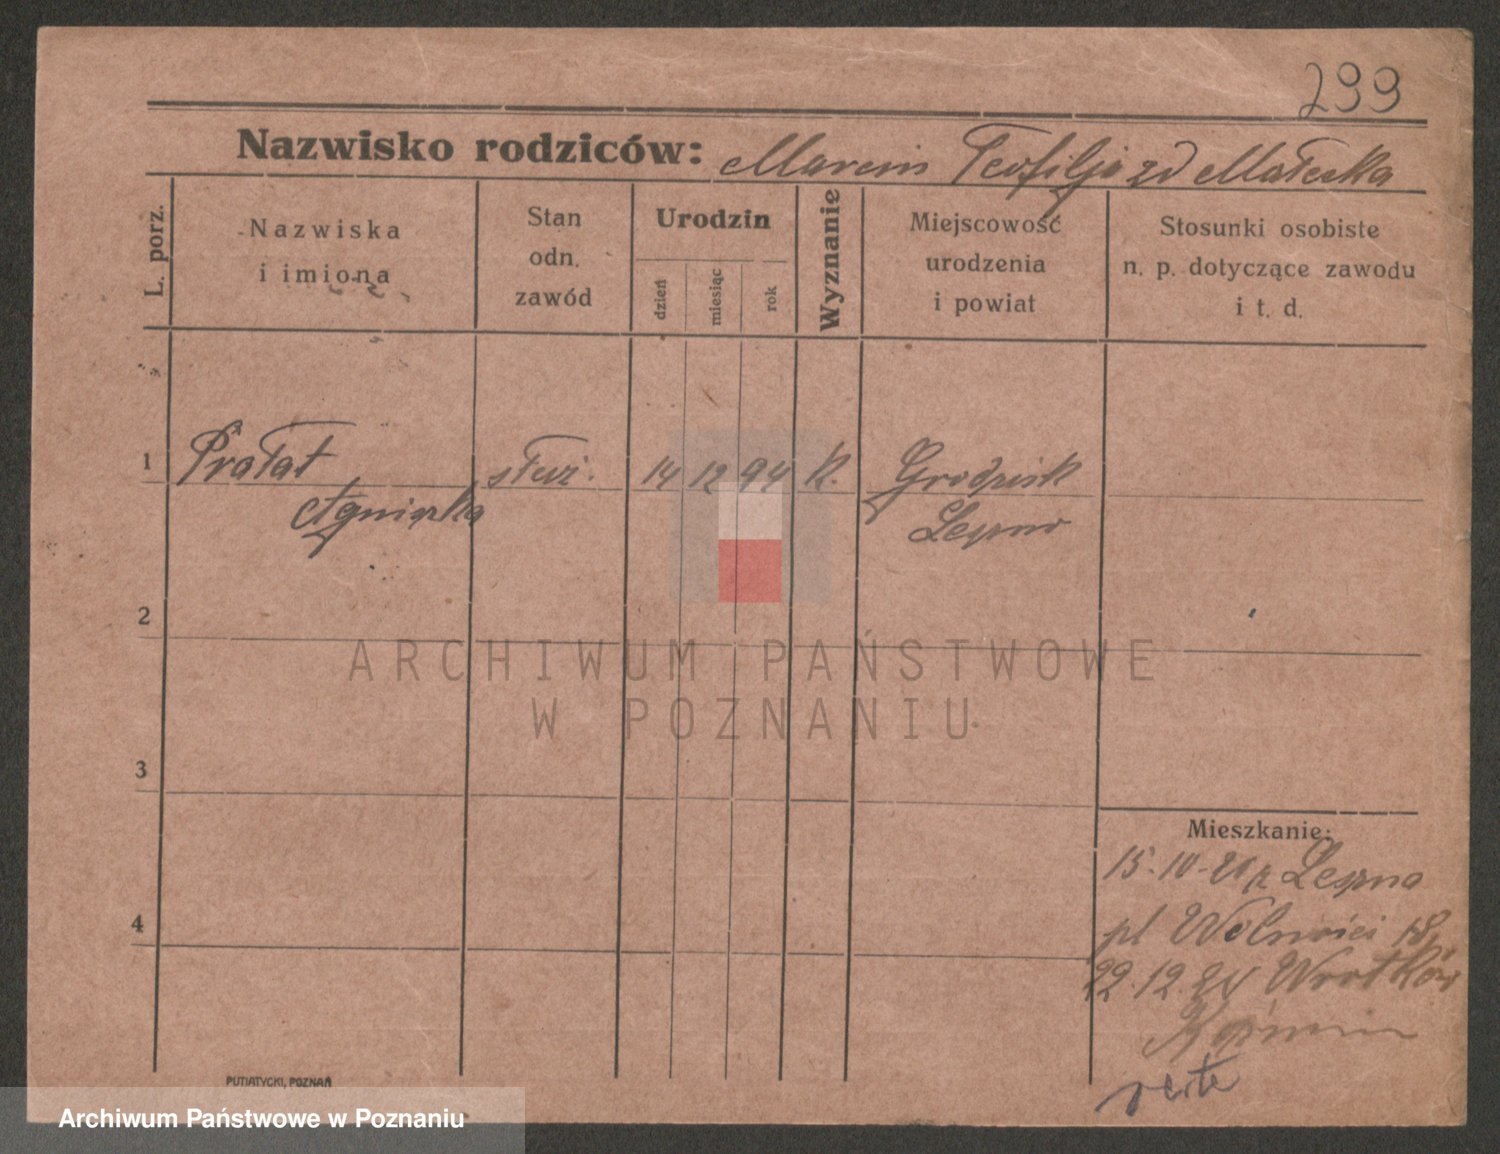 299
Nazwisko rodziców: Marcin Teofilja zd Małecka
L. porz.
Nazwiska
i imiona
Stan
odn.
zawód
Urodzin
dzień
miesiąc
rok
Wyznanie
Miejscowość
urodzenia
i powiat
Stosunki osobiste
n. p. dotyczące zawodu
i t. d.
1 Prałat służ. 14 12 94 k. Grodzisk
Agnieszka Leszno
2
ARCHIWUM PAŃSTWOWE
W POZNANIU
3
Mieszkanie:
15.10. z Leszna
4
pl Wolności 18
22.12. Wrotków
Koźmin
verte
PUTIATYCKI, POZNAŃ
Archiwum Państwowe w Poznaniu